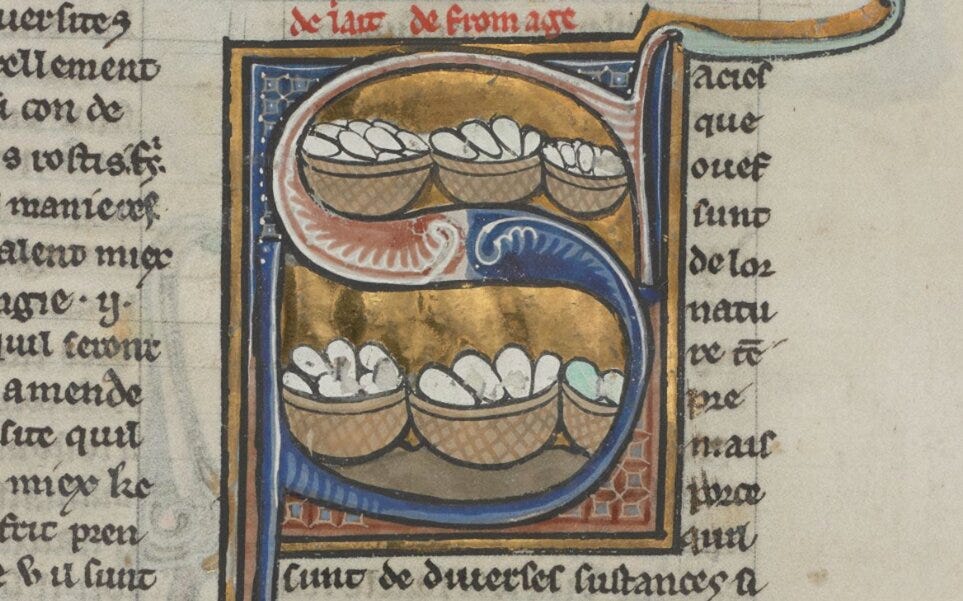 uersites
de lait de fromage
ellement
con de
s rostis
manieres
alent miex
agie · ij ·
quil seront
amende
site quil
miex ke
frit pren
v il sunt
S
acies
que
ouef
sunt
de lor
natu
re tē
pre
mais
porce
quil
sunt de diuerses sustances si